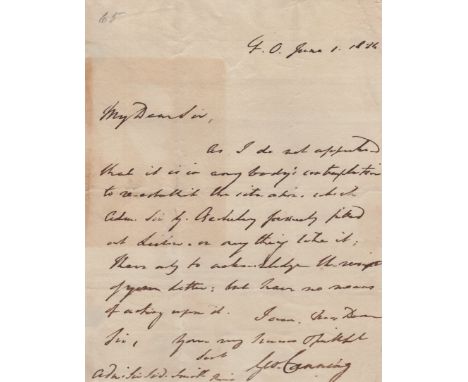 65
F. O. June 1. 1826
My Dear Sir,
As I do not apprehend
that it is in any body's contemplation
to re-establish the situation which
Adm. Sir G. Berkeley formerly filled
at Lisbon, or any thing like it;
I have only to acknowledge the receipt
of your letter; but have no means
of acting upon it.
I am, Dear
Sir, your
Geo. Canning
Adm: Sir Sid. Smith